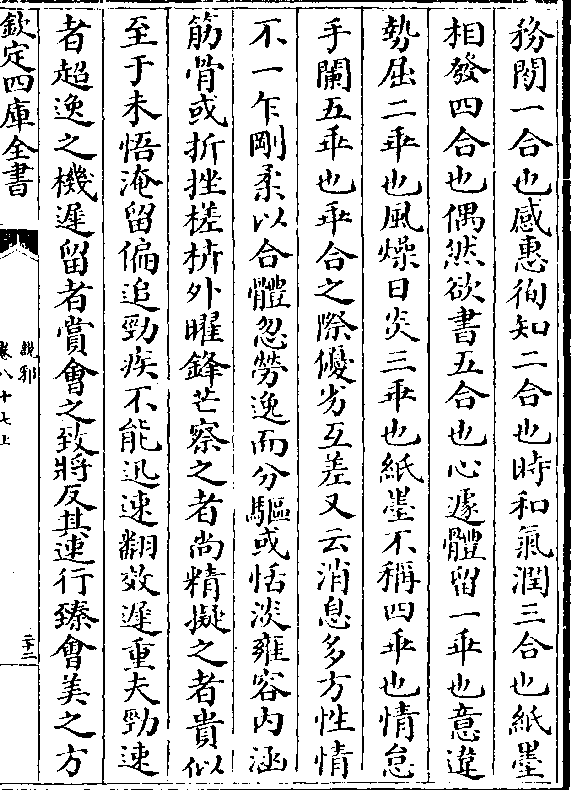 務閒一合也感惠徇知二合也時和氣潤三合也紙墨
相發四合也偶然欲書五合也心遽體留一乖也意違
勢屈二乖也風燥日炎三乖也紙墨不稱四乖也情怠
手闌五乖也乖合之際優劣互差又云消息多方性情
不一乍剛柔以合體忽勞逸而分驅或恬淡雍容内涵
筋骨或折挫槎枿外曜鋒芒察之者尚精擬之者貴似
至于未悟淹留偏追勁疾不能迅速翻效遲重夫勁速
者超逸之機遲留者賞會之致將反其速行臻會美之方
欽定四庫全書
説郛
卷八十七上
二十三